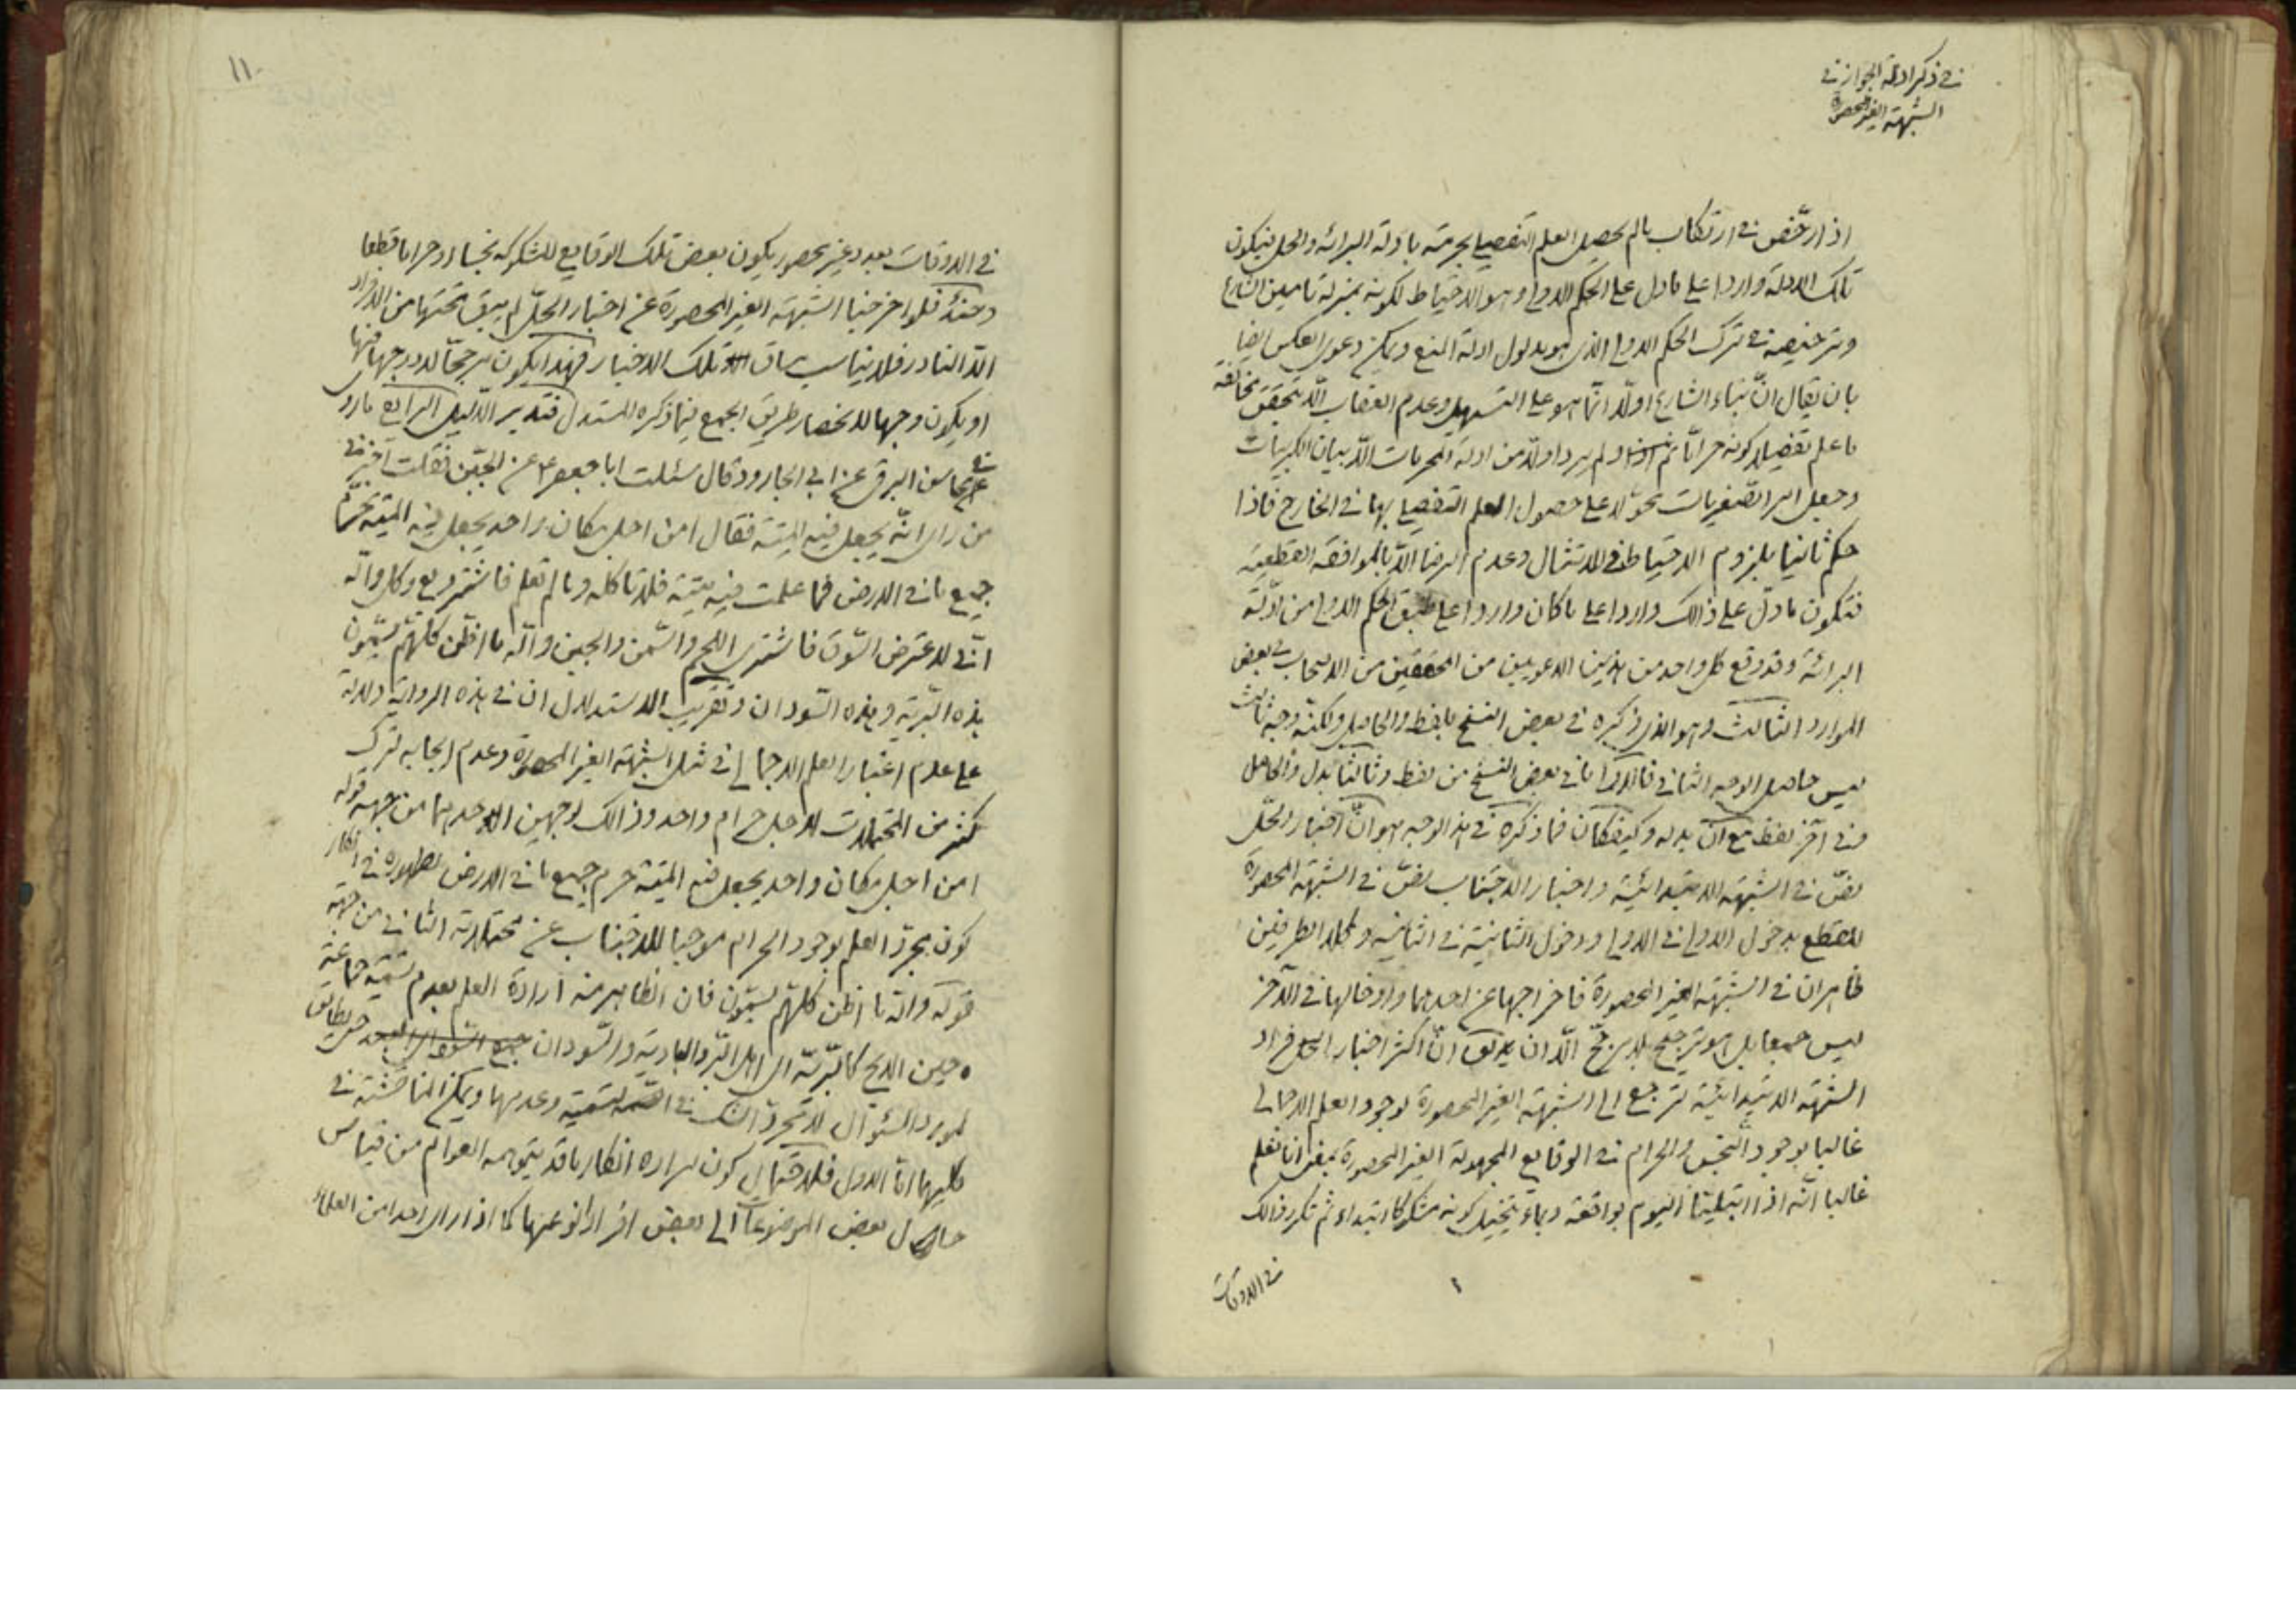 في ذكر ادلة الجواز في
الشبهة الغير المحصورة
اذا رخّص في ارتكاب ما لم يحصل العلم التفصيلي بحرمته بادلة البرائة والحل فيكون
تلك الادلة واردا على ما دل على الحكم الاولي وهو الاحتياط لكونه بمنزلة تامين الشارع
وترخيصه في ترك الحكم الاولي الذي هو مدلول ادلة المنع ويمكن دعوى العكس ايضا
بان يقال انّ بناء الشارع اولا انّما هو على التسهيل وعدم العقاب الّا بتحقق مخالفة
ما علم تفصيلا كونه حراما ولم يرد اولا من ادلة المحرمات الّا بيان الكبريات
وجعل امر الصّغريات محوّلا على حصول العلم التفصيلي بها في الخارج فاذا
حكم ثانيا بلزوم الاحتياط في الامتثال وعدم الرضا الّا بالموافقة القطعية
فتكون ما دلّ على ذالك واردا على ما كان واردا على طبق الحكم الاولي من ادلّة
البرائة وقد وقع كل واحد من هذين الدعويين من المحققين من الاصحاب في بعض
الموارد الثالث وهو الذي ذكره في بعض النسخ بلفظ والحاصل ولكنّه وجه ثالث
ليس حاصل الوجه الثاني ما في بعض النسخ من لفظ وثالثا بدل والحاصل
وفي آخر لفظ مع انّ بدله وكيفكان فما ذكره في هذا الوجه هو انّ اخبار الحلّ
نصّ في الشبهة الابتدائية واخبار الاجتناب نصّ في الشبهة المحصورة
للقطع بدخول الاولى في الاولى ودخول الثانية في الثانية وكلا الطرفين
ظاهران في الشبهة الغير المحصورة فاخراجها عن احدهما وادخالها في الآخر
ليس جمعا بل هو ترجيح بلا مرجّح الّا ان يق انّ اكثر افراد
الشبهة الابتدائية ترجع الى الشبهة الغير المحصورة لوجود العلم الاجمالي
غالبا بوجود النجس والحرام في الوقايع المجهولة الغير المحصورة بمعنى انا نعلم
غالبا انّه اذا ابتلينا اليوم بواقعة وبماء يتخيل كونه مشكوكا ابتداء ثم تكرر ذالك
في الاوقات
١١٠
في الاوقات بعدد غير محصور يكون بعض تلك الوقايع المشكوكة نجسا او حراما قطعا
وحينئذ فلو اخرجنا الشبهة الغير المحصورة عن اخبار الحلّ لم يبق تحتها من الافراد
الّا النادر فلا يناسب مساق تلك الاخبار فهذا يكون مرجّحا لدرجها فيها
او يكون وجها لانحصار طريق الجمع فيما ذكره المستدل فتدبر الدّليل الرابع ما روى
في محاسن البرقي عن ابي الجارود قال سئلت ابا جعفر ع عن الجبّن فقلت اخبرني
من راى انّه يجعل فيه الميتة فقال امن اجل مكان واحد يجعل فيه الميتة حرّم
جميع ما في الارض فما علمت فيه ميتة فلا تاكله وما لم تعلم فاشتر وبع وكل والله
انّي لاعترض السّوق فاشتري اللّحم والسّمن والجبن والله ما اظنّ كلّهم يسمّون
هذه البربرية وهذه السّودان وتقريب الاستدلال ان في هذه الرواية دلالة
على عدم اعتبار العلم الاجمالي في مثل الشبهة الغير المحصورة وعدم ايجابه لترك
كثير من المحتملات لاجل حرام واحد وذالك لوجهين احدهما من جهة قوله
امن اجل مكان واحد يجعل فيه الميتة حرم جميع ما في الارض لظهوره في انكار
كون مجرّد العلم بوجود الحرام موجبا للاجتناب عن محتملاته الثاني من جهة
قوله والله ما اظنّ كلّهم يسمّون فان الظاهر منه ارادة العلم بعدم تسمية جماعة
حين الذبح كالبربريّة والسّودان حتى يطابق
لمورد السّئوال لا مجرّد الشك في التسمية وعدمها ويمكن المناقشة في
كليهما امّا الاول فلاحتمال كون المراد انكار ما قد يتوهمه العوام من قياس
حال بعض الموضوعات الى بعض افراد نوعها كما اذا راى احدا من العلماء